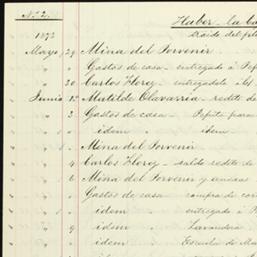 Nº 2.
Haber - la Ca
Traido del fol
1873
Mayo 29 Mina del Porvenir
" " Gastos de casa - entregado á Pep
" 30 Carlos Florez - entregadole á los
Junio 1º Matilde Olavarria - redito de
" 3 Gastos de casa - Pepita para
" " idem " idem
" " Mina del Porvenir
" 4 Carlos Florez - saldo redito de
" " Mina del Porvenir y
" " Gastos de casa compra de
" " idem " entregado á P
" 9 idem " Lavandera
" " idem " Escuela de Ma